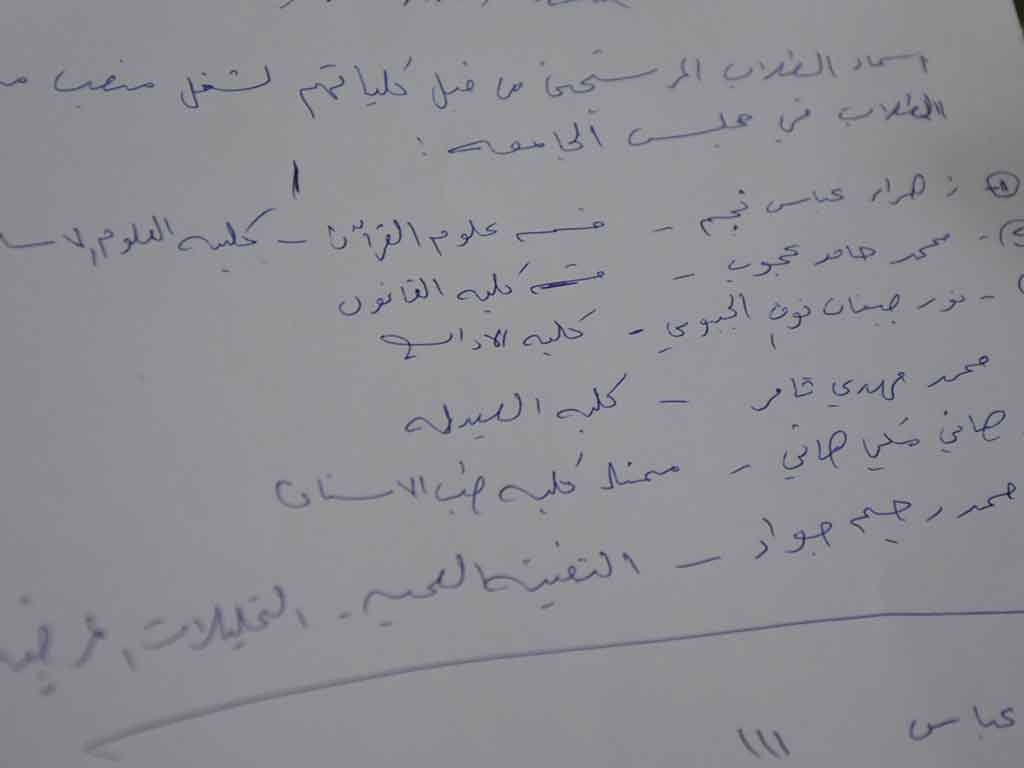 اسماء الطلاب المرشحين من قبل كلياتهم لشغل منصب
الطلاب في مجلس الجامعة :
ضرار عباس نجم - قسم علوم القرآن - كلية العلوم الاسلا
- محمد حامد محجوب - كلية القانون
- نور الجبوري - كلية الاداب
محمد مهدي ثامر - كلية الصيدلة
هاني مكي هاني - ممثل كلية طب الاسنان
محمد رحيم جواد - التقنية الصحية - التحليلات المرضية
عباس ١١١